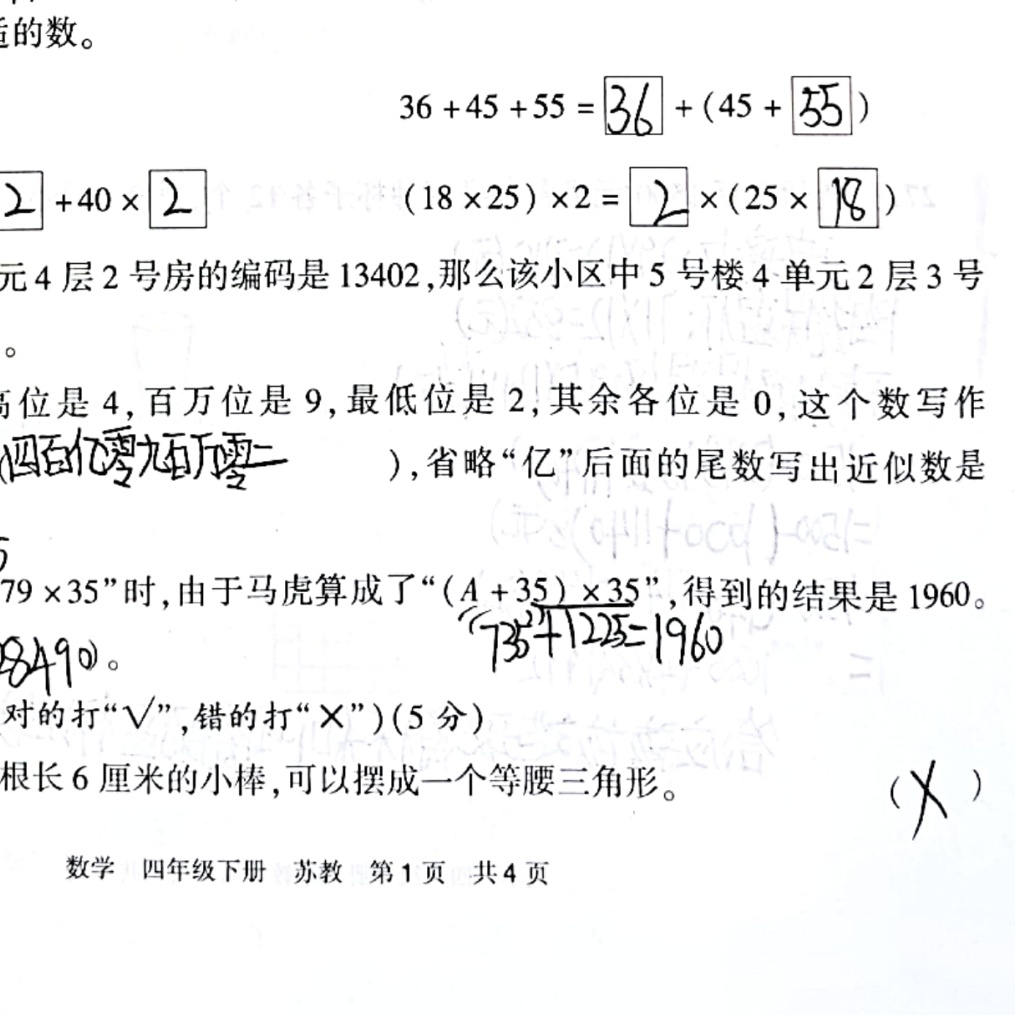 适的数。
36 + 45 + 55 = 36 + (45 + 55)
2 + 40 × 2 (18 × 25) × 2 = 2 × (25 × 18)
元 4 层 2 号房的编码是 13402,那么该小区中 5 号楼 4 单元 2 层 3 号
。
高位是 4,百万位是 9,最低位是 2,其余各位是 0,这个数写作
(四百亿零九百万零二 ),省略“亿”后面的尾数写出近似数是
79 × 35”时,由于马虎算成了“(A + 35) × 35”,得到的结果是 1960。
735 + 1225 = 1960
28490)。
对的打“√”,错的打“×”)(5 分)
根长 6 厘米的小棒,可以摆成一个等腰三角形。 (X)
数学 四年级下册 苏教 第 1 页 共 4 页